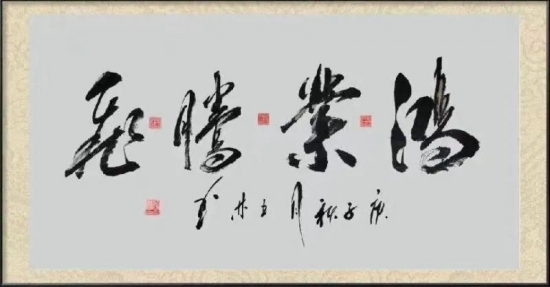 鸿業騰飛
庚子秋月玉林书